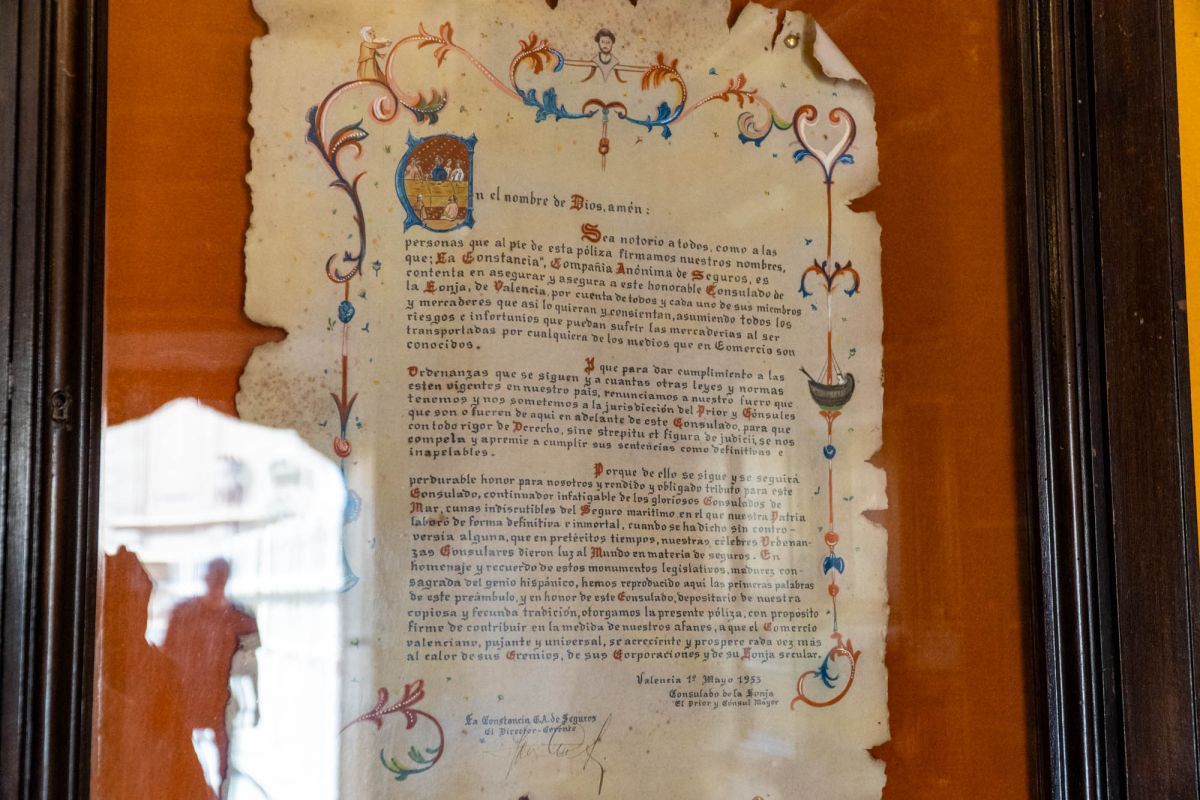 En el nombre de Dios, amén:
Sea notorio a todos, como a las
personas que al pie de esta póliza firmamos nuestros nombres,
que; La Constancia", Compañia Anónima de Seguros, es
contenta en asegurar y asegura a este honorable Consulado de
la Lonja, de Valencia, por cuenta de todos y cada uno de sus miembros
y mercaderes que asi lo quieran y consientan, asumiendo todos los
riesgos e infortunios que puedan sufrir las mercaderias al ser
transportadas por cualquiera de los medios que en Comercio son
conocidos.
Y que para dar cumplimiento a las
Ordenanzas que se siguen y a cuantas otras leyes y normas
estén vigentes en nuestro país, renunciamos a nuestro fuero que
tenemos y nos sometemos a la jurisdicción del Prior y Cónsules
que son o fueren de aqui en adelante de este Consulado, para que
con todo rigor de Derecho, sine strepitu et figura de judicii, se nos
compela y apremie a cumplir sus sentencias como definitivas e
inapelables.
Porque de ello se sigue y se seguirá
perdurable honor para nosotros y rendido y obligado tributo para este
Consulado, continuador infatigable de los gloriosos Consulados de
Mar, cunas indiscutibles del Seguro maritimo, en el que nuestra Patria
laboró de forma definitiva e inmortal, cuando se ha dicho sin contro-
versia alguna, que en pretéritos tiempos, nuestras célebres Ordenan-
zas Consulares dieron luz al Mundo en materia de seguros. En
homenaje y recuerdo de estos monumentos legislativos, madurez con-
sagrada del genio hispánico, hemos reproducido aqui las primeras palabras
de este preámbulo, y en honor de este Consulado, depositario de nuestra
copiosa y fecunda tradición, otorgamos la presente póliza, con propósito
firme de contribuir en la medida de nuestros afanes, a que el Comercio
valenciano, pujante y universal, se acreciente y prospere cada vez más
al calor de sus Gremios, de sus Corporaciones y de su Lonja secular.
Valencia 1º Mayo 1953
Consulado de la Lonja
El Prior y Cónsul Mayor
La Constancia C.A. de Seguros
El Director-Gerente